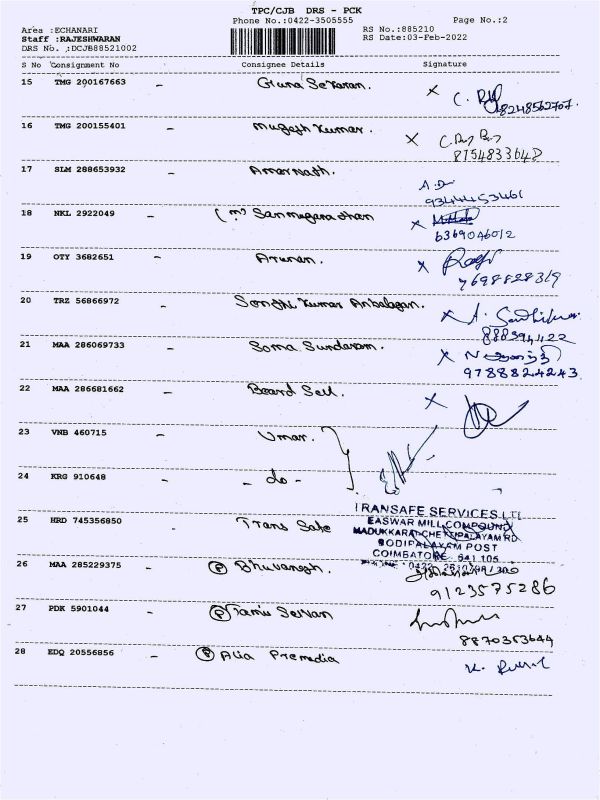 TPC/CJB DRS - PCK
Phone No.:0422-3505555 Page No.:2
Area :ECHANARI RS No.:885210
Staff :RAJESHWARAN RS Date:03-Feb-2022
DRS No. :DCJB88521002
S No Consignment No Consignee Details Signature
15 TMG 200167663 - Guna Sekaran. x
8248562707.
16 TMG 200155401 - Mugesh Kumar. x
8754833640
17 SLM 288653932 - Amarnath. A.D
9344453461
18 NKL 2922049 - x
6369046012
19 OTY 3682651 - Arunan. x
7698828319
20 TRZ 56866972 - Kumar Anbalagan. x
21 MAA 286069733 - Soma Sundaram. x
9788824243
22 MAA 286681662 - Board Sell. x
23 VNB 460715 - Umar.
24 KRG 910648 - - do -
25 HRD 745356850 - Trans Safe
TRANSAFE SERVICES LTD
EASWAR MILL COMPOUND
MADUKKARAI CHETTIPALAYAM RD
PODIPALAYAM POST
COIMBATORE 641 105
26 MAA 285229375 - (P) Bhuvanesh.
9123575286
27 PDK 5901044 - (P) Tamil Selvan
8870353644
28 EDQ 20556856 - (P) Alia Premedia